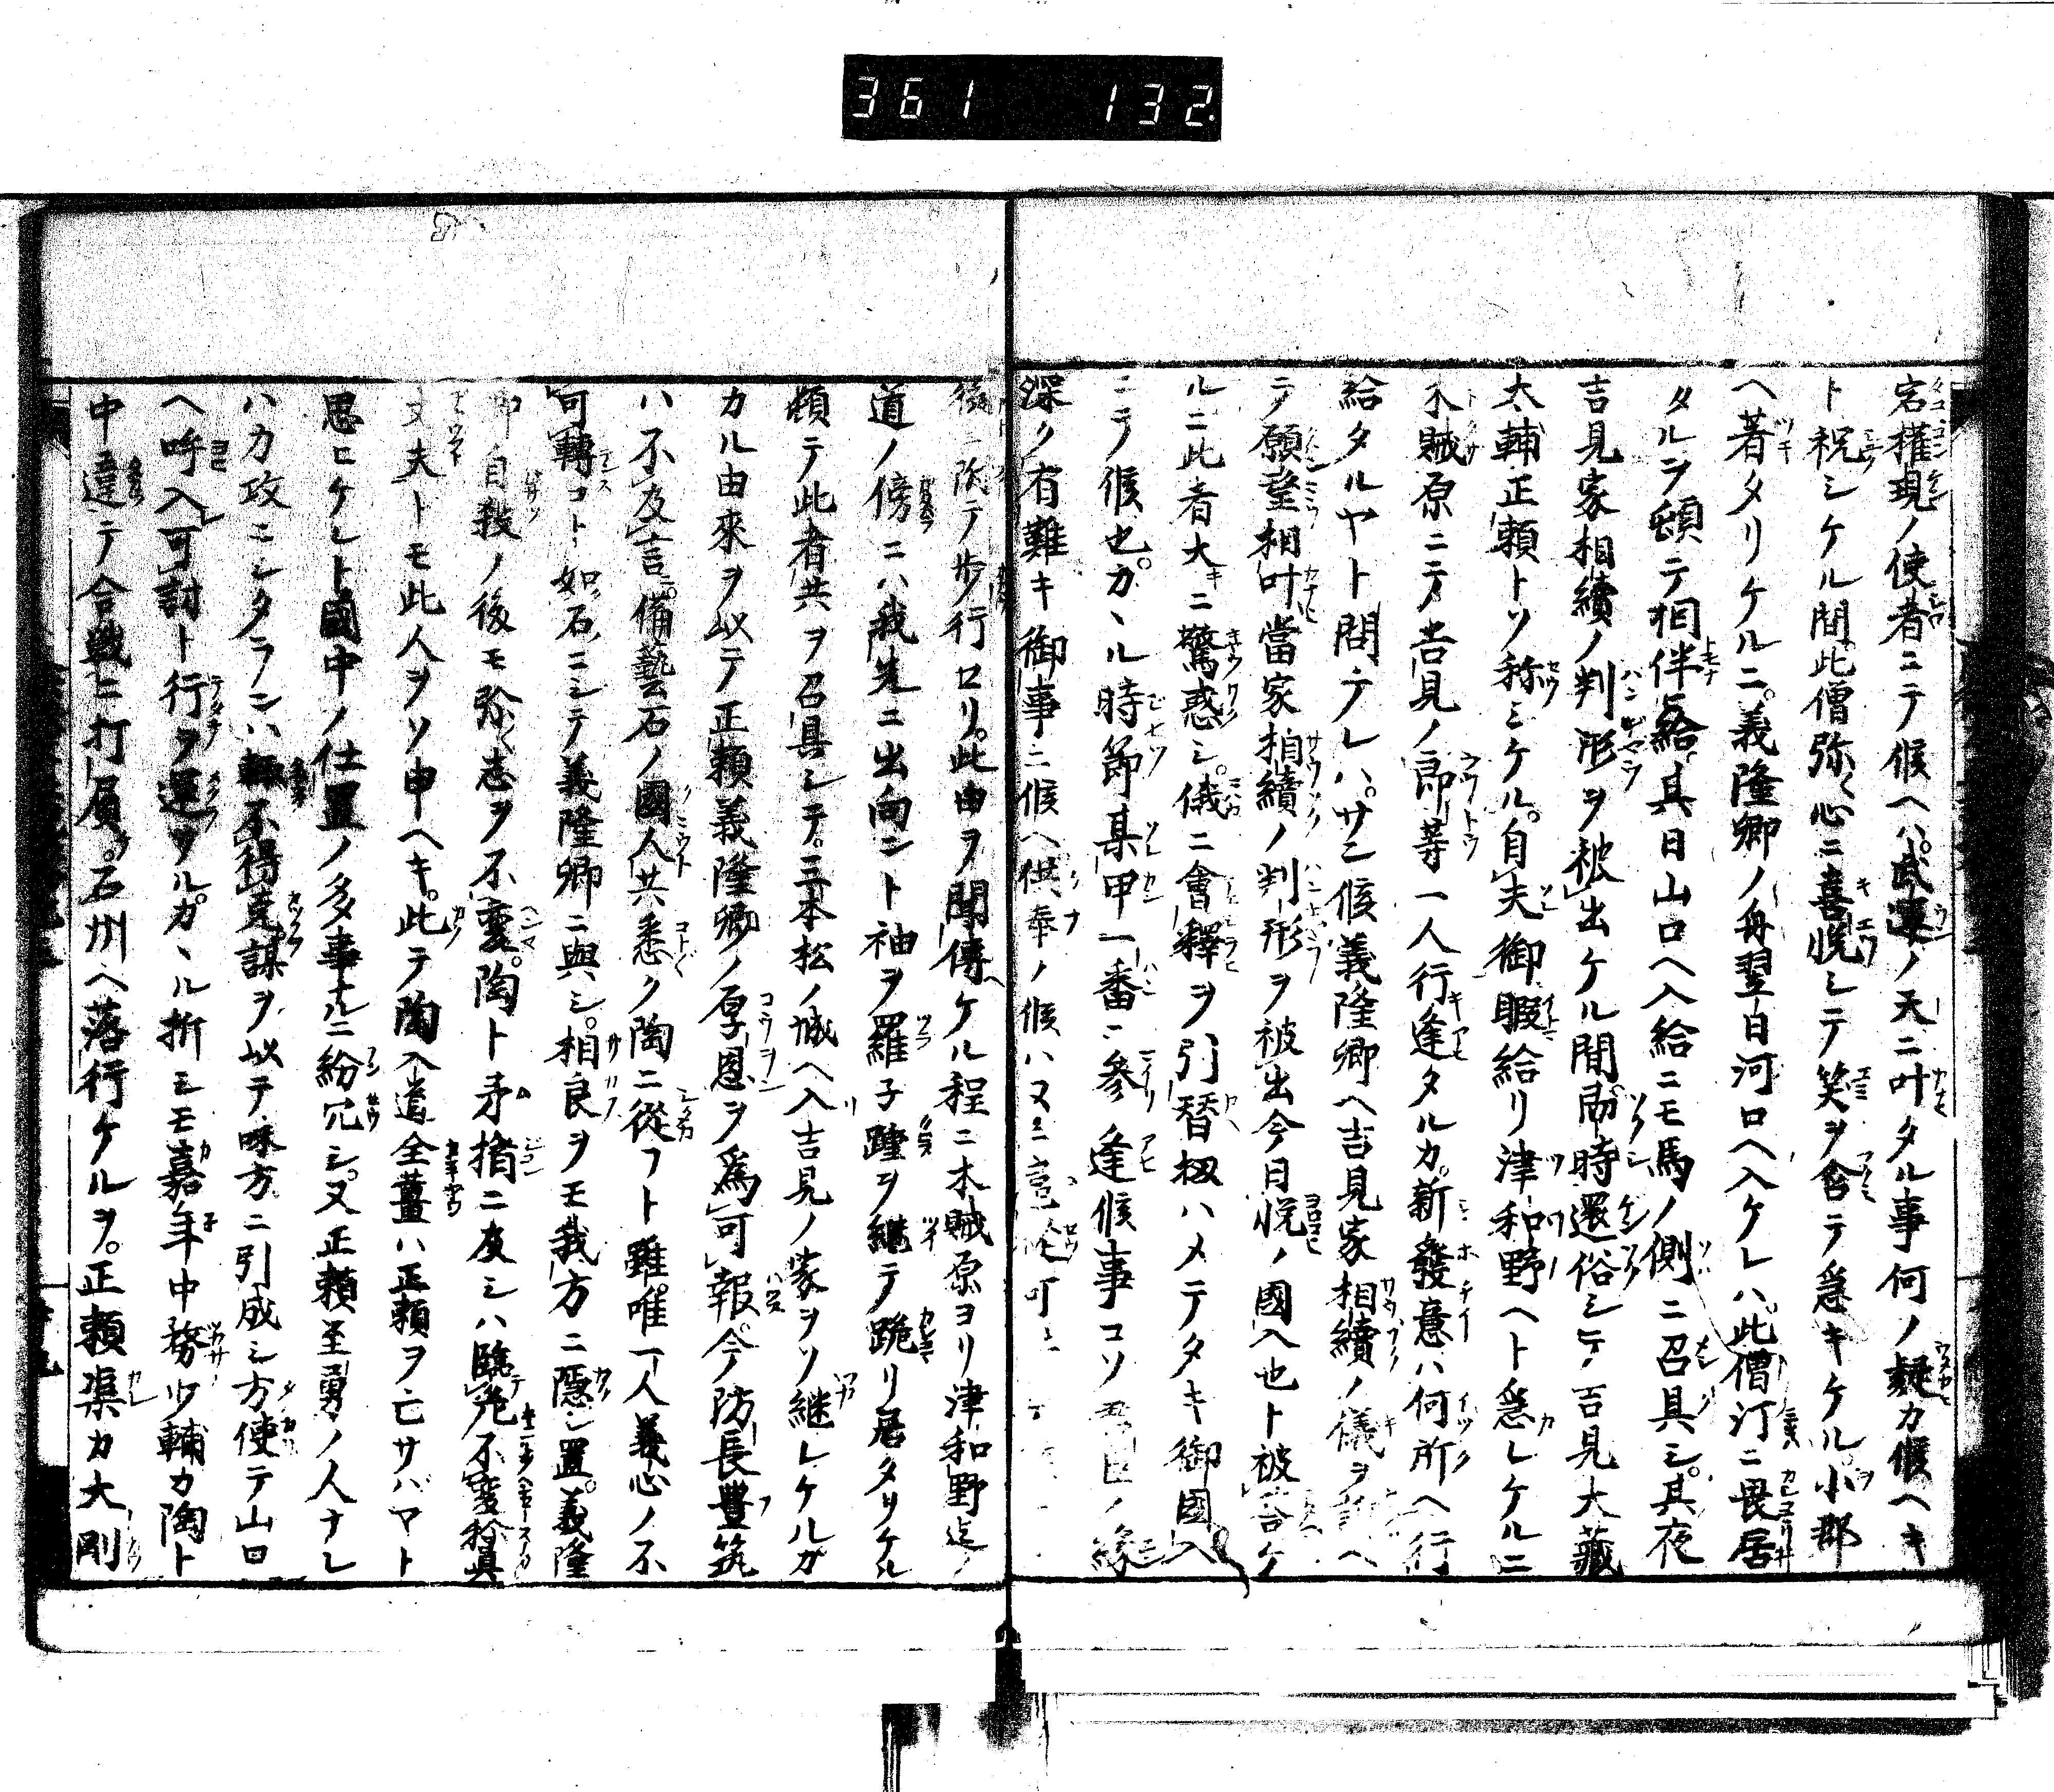 361 132.
宕権現ノ使者ニテ候ヘハ。武運ノ天ニ叶タル事何ノ疑カ候ヘキ
ト祝シケル間。此僧弥〻心ニ喜悦シテ笑ヲ含テ急キケル。小郡
ヘ著タリケルニ。義隆卿ノ舟翌日河口ヘ入ケレハ。此僧汀ニ畏居
タルヲ頓テ相伴給。其日山口ヘ入給ニモ馬ノ側ニ召具シ。其夜
吉見家相續ノ判形ヲ被出ケル間。即時還俗シテ。吉見大藏
太輔正頼トソ称シケル。自夫御暇給リ津和野ヘト急レケルニ
木賊原ニテ吉見ノ郎等一人行逢タルカ。新發意ハ何所ヘ行
給タルヤト問テレハ。サン候義隆卿ヘ吉見家相續ノ儀ヲ訴ヘ
テ願望相叶當家相續ノ判形ヲ被出今日悦ノ國入也ト被答ケ
ルニ此者大キニ驚惑シ。俄ニ會釋ヲ引替扨ハメテタキ御國入
ニテ候也。カヽル時節某甲一番ニ參リ逢候事コソ ノ縁
深ク有難キ御事ニ候ヘ供奉ノ候ハヌニ
テ歩行ロリ。此由ヲ聞傳ケル程ニ木賊原ヨリ津和野迄ノ
道ノ傍ニハ我先ニ出向ント袖ヲ羅子踵ヲ継テ跪リ居タリケル
頓テ此者共ヲ召具シテ。三本松ノ城ヘ入吉見ノ家ヲソ継レケルカ
カル由來ヲ以テ正頼義隆卿ノ厚恩ヲ為可報。今防長豊筑
ハ不及言。備藝石ノ國人共悉ク陶ニ從フト雖。唯一人義心ノ不
可轉コト如石ニシテ義隆卿ニ與シ。相良ヲモ我方ニ隠シ置。義隆
卿自殺ノ後モ弥〻志ヲ不變。陶ト矛楯ニ及シハ臨死不變
丈夫トモ此人ヲソ申ヘキ。此テ陶入道全薑ハ正頼ヲ亡サバヤト
思ヒケレト國中ノ仕置ノ多事ナルニ紛冗シ。又正頼至勇ノ人ナレ
ハ力攻ニシタランハ輙不得克謀ヲ以テ味方ニ引成シ方便テ山口
ヘ呼入可討ト行ヲ運ヲルカヽル折シモ嘉年中務少輔カ陶ト
中違テ合戦ニ打負。石州ヘ落行ケルヲ。正頼渠カ大剛